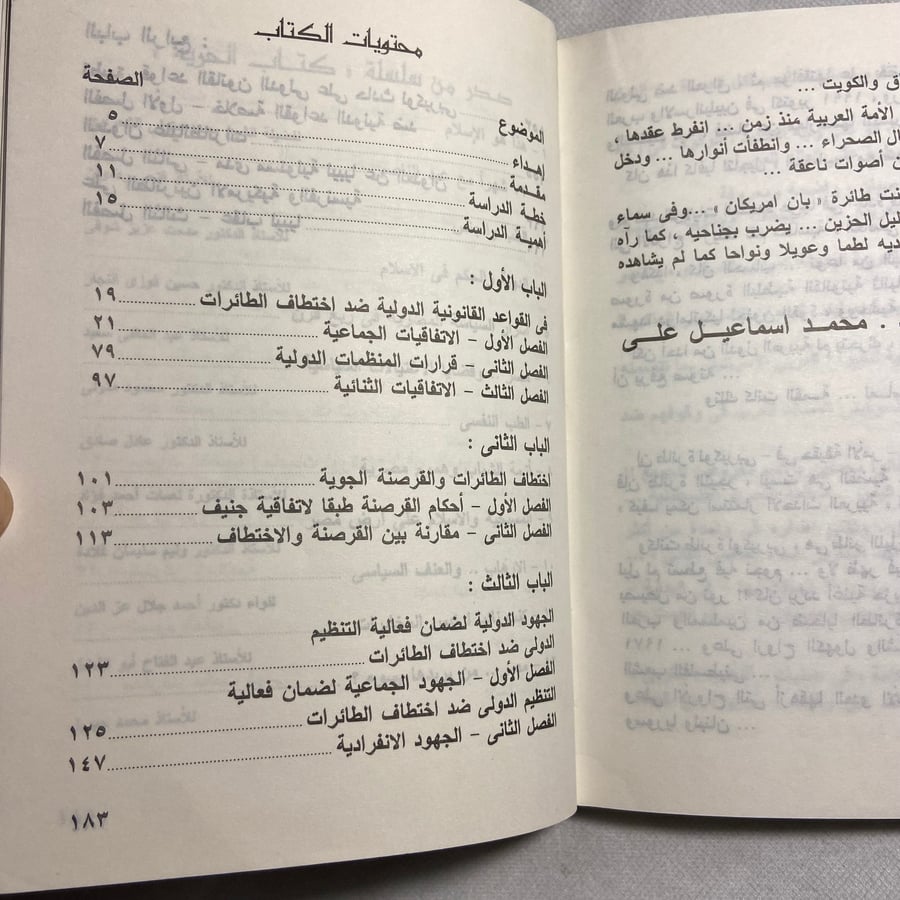 اق والكويت ...
الأمة العربية منذ زمن ... انفرط عقدها ،
ال الصحراء ... وانطفأت أنوارها ... ودخل
ن أصوات ناعقة ...
نت طائرة « بان امريكان » ...وفى سماء
ليل الحزين ... يضرب بجناحيه ، كما رآه
ديه لطما وعويلا ونواحا كما لم يشاهده
. محمد اسماعيل على
محتويات الكتاب
الموضوع الصفحة
إهداء ٥
مقدمة ٧
خطة الدراسة ١١
أهمية الدراسة ١٥
الباب الأول :
فى القواعد القانونية الدولية ضد اختطاف الطائرات ١٩
الفصل الأول - الاتفاقيات الجماعية ٢١
الفصل الثانى - قرارات المنظمات الدولية ٧٩
الفصل الثالث - الاتفاقيات الثنائية ٩٧
الباب الثانى :
اختطاف الطائرات والقرصنة الجوية ١٠١
الفصل الأول - أحكام القرصنة طبقا لاتفاقية جنيف ١٠٣
الفصل الثانى - مقارنة بين القرصنة والاختطاف ١١٣
الباب الثالث :
الجهود الدولية لضمان فعالية التنظيم
الدولى ضد اختطاف الطائرات ١٢٣
الفصل الأول - الجهود الجماعية لضمان فعالية
التنظيم الدولى ضد اختطاف الطائرات ١٢٥
الفصل الثانى - الجهود الانفرادية ١٤٧
١٨٣